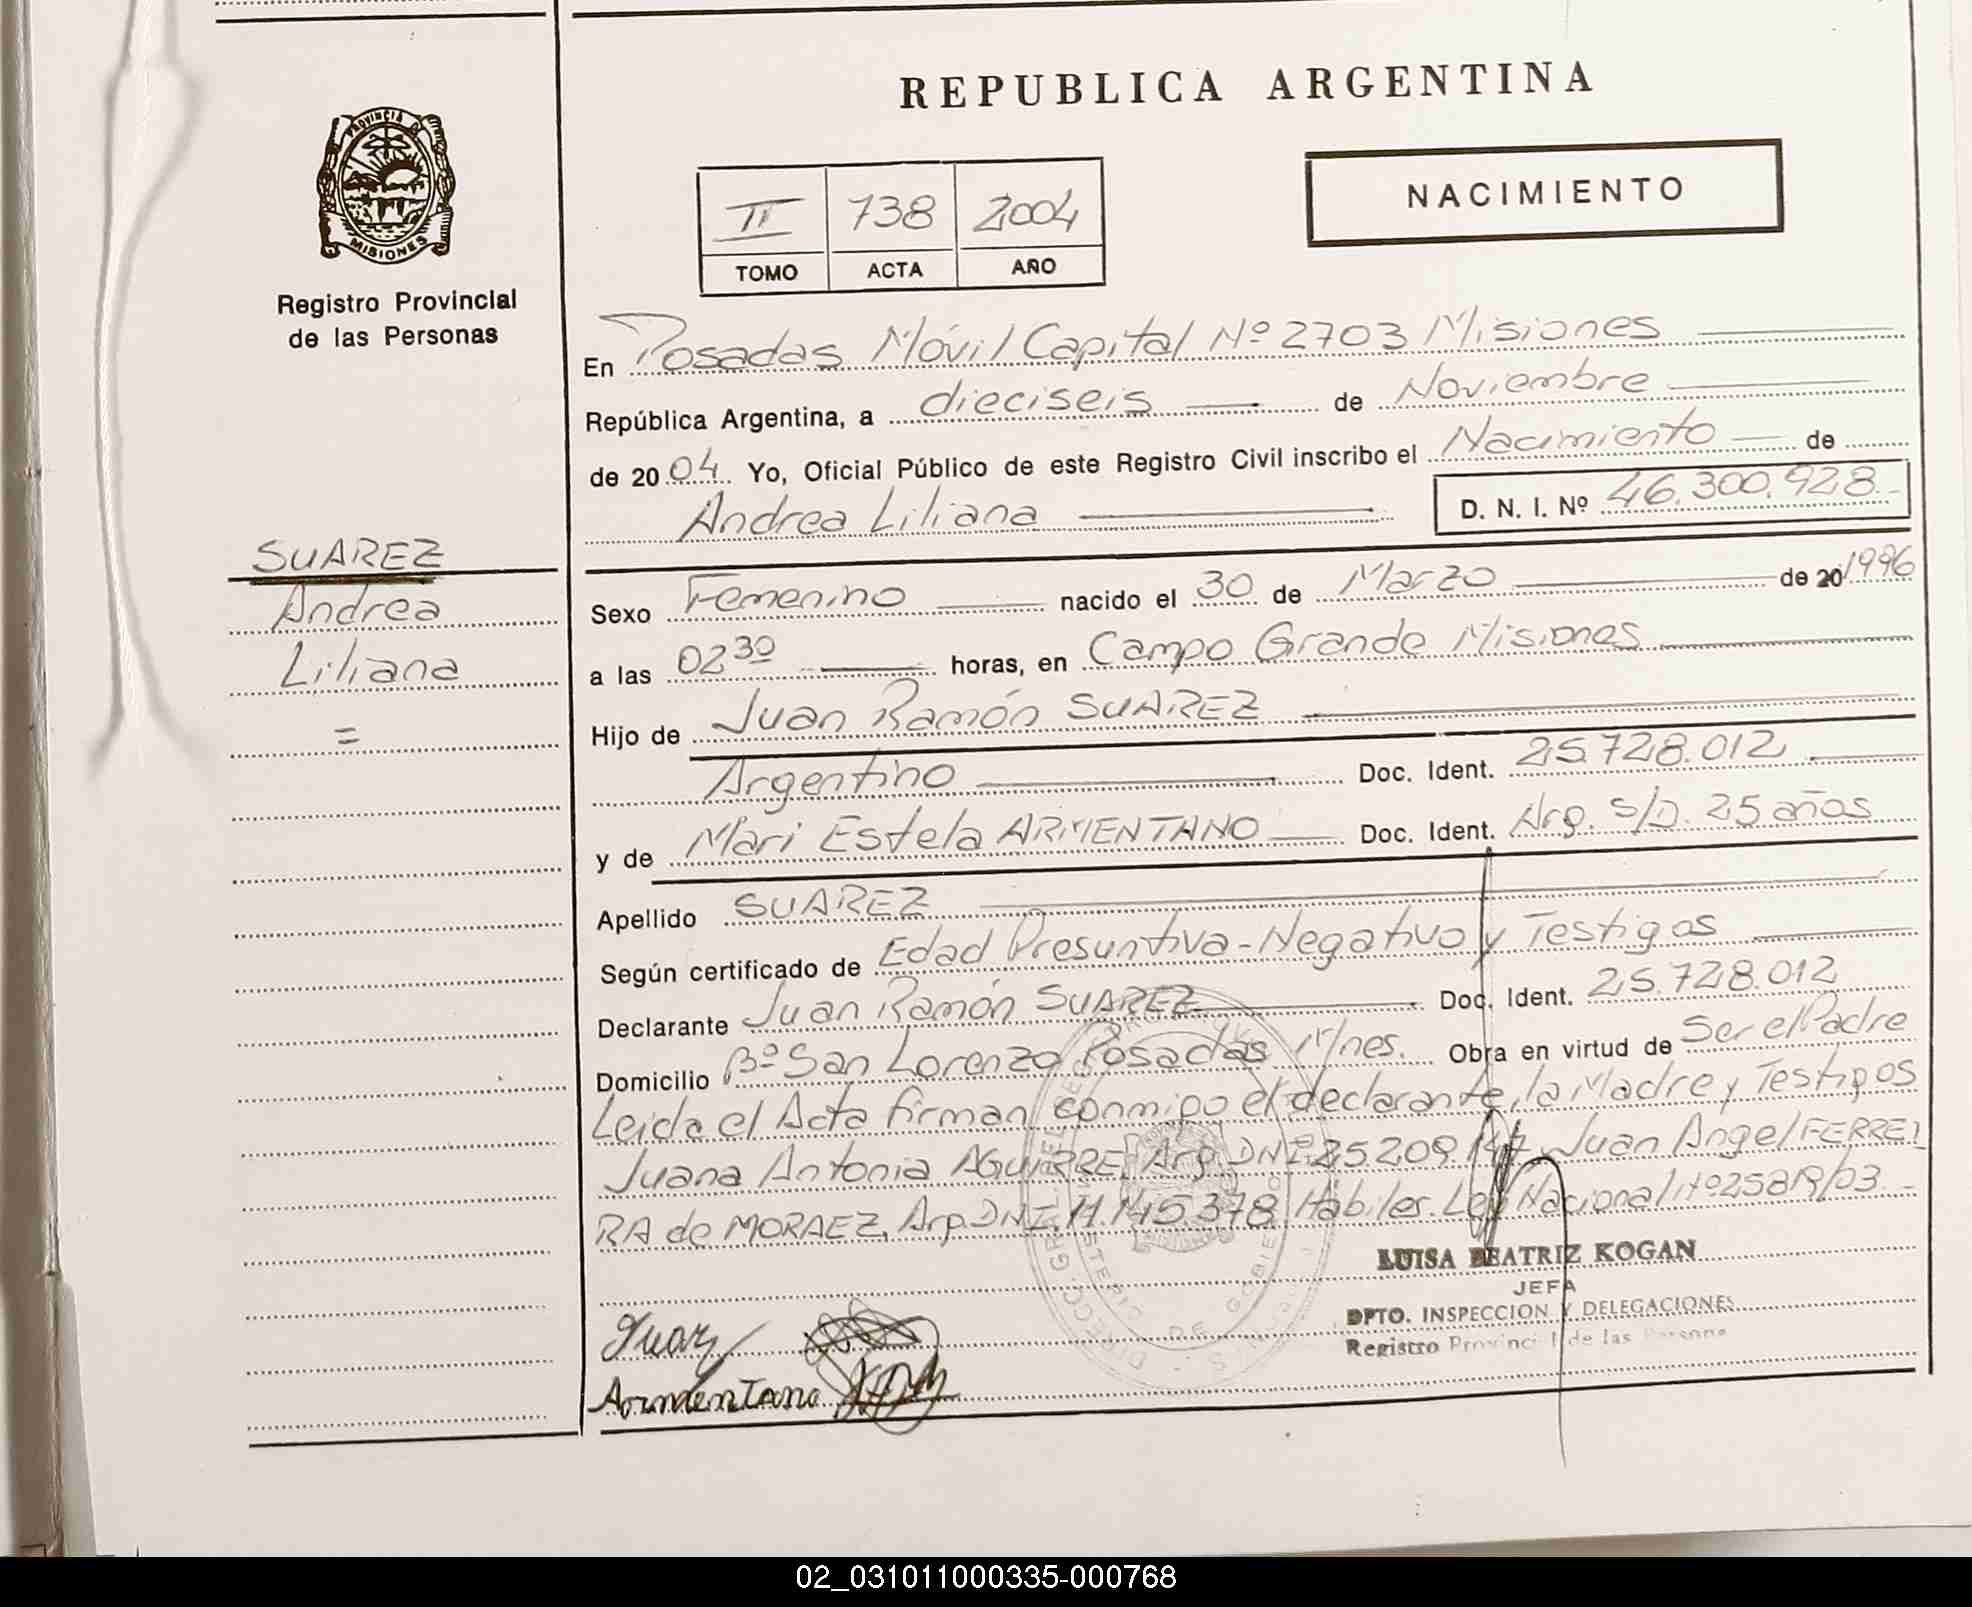 REPUBLICA ARGENTINA
PROVINCIA DE
MISIONES
Registro Provincial
de las Personas
II 738 2004
TOMO ACTA AÑO
NACIMIENTO
En Posadas Móvil Capital Nº 2703 Misiones
República Argentina, a dieciseis de Noviembre
de 2004 Yo, Oficial Público de este Registro Civil inscribo el Nacimiento de
Andrea Liliana D. N. I. Nº 46.300.928
SUAREZ
Andrea
Liliana
=
Sexo Femenino nacido el 30 de Marzo de 20 1996
a las 02 30 horas, en Campo Grande Misiones
Hijo de Juan Ramón SUAREZ
Argentino Doc. Ident. 25.728.012
y de Mari Estela ARMENTANO Doc. Ident. Arg. s/D. 25 años
Apellido SUAREZ
Según certificado de Edad Presuntiva - Negativo y Testigos
Declarante Juan Ramón SUAREZ Doc. Ident. 25.728.012
Domicilio Bº San Lorenzo Posadas M/nes. Obra en virtud de Ser el Padre
Leida el Acta firman conmigo el declarante, la Madre y Testigos
Juana Antonia AGUIRRE, Arg. DNI. 25.209. Juan Angel FERREI
RA de MORAEZ, Arg. DNI. 11.145.378 Habiles. Ley Nacional Nº 25819/03.
LUISA BEATRIZ KOGAN
JEFA
DPTO. INSPECCION Y DELEGACIONES
Registro Provincial de las Personas
Juan
Armentano
02_031011000335-000768